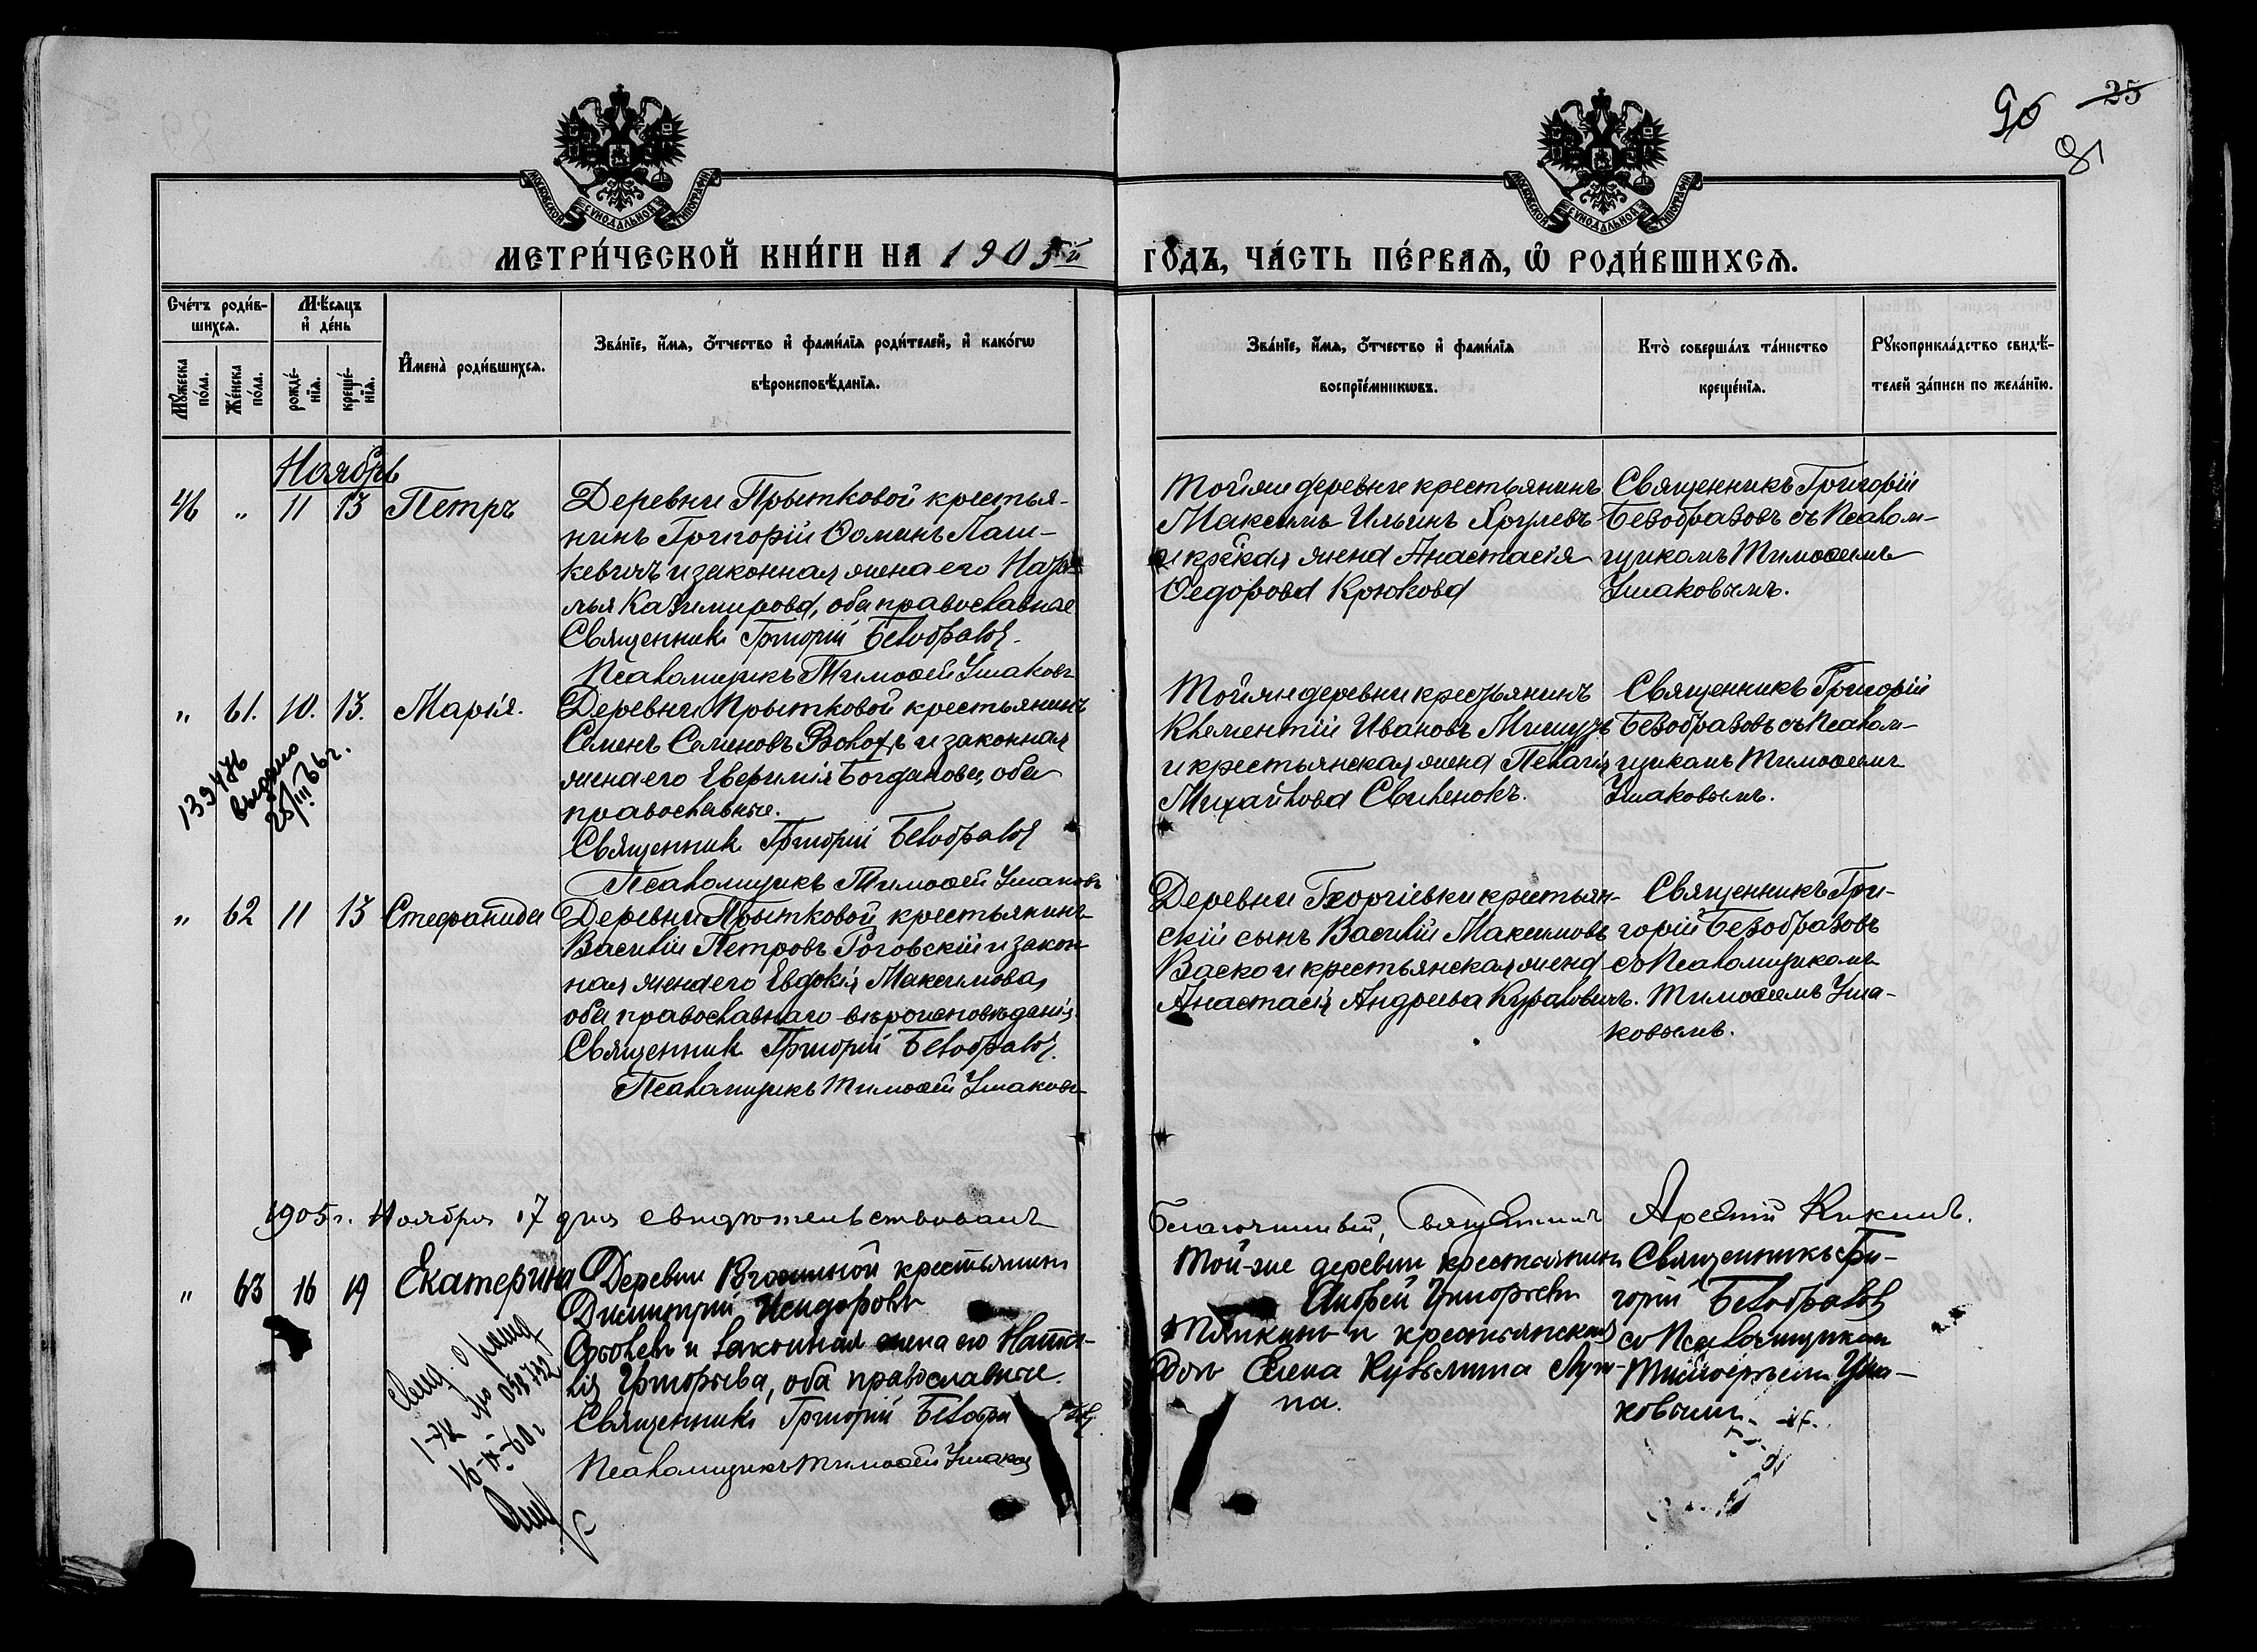 25
МОСКОВСКОЙ СѴНОДАЛЬНОЙ ТИПОГРАФІИ
МОСКОВСКОЙ СѴНОДАЛЬНОЙ ТИПОГРАФІИ
МЕТРИ́ЧЕСКОЙ КНИ́ГИ НА 1905й
ГОДЪ, ЧА́СТЬ ПЕ́РВАѦ, Ѡ РОДИ́ВШИХСѦ.
Сче́тъ роди́в-
шихсѧ.
Мꙋ́жеска по́ла.
Же́нска по́ла.
Мѣ́сяцъ
и҆ де́нь
рожде́-
нїѧ.
креще́-
нїѧ.
И҆мена̀ роди́вшихсѧ.
Зва́нїе, и҆́мѧ, ѻ҆́тчество и҆ фами́лїѧ роди́телей, и҆ како́гѡ
вѣроисповѣ́данїѧ.
Зва́нїе, и҆́мѧ, ѻ҆́тчество и҆ фами́лїѧ
воспрїе́мникѡвъ.
Кто̀ соверша́лъ та́инство
креще́нїѧ.
Рꙋкоприкла́дство свидѣ́-
телей за́писи по жела́нїю.
Ноябрь
46 „ 11 13 Петръ
Деревни Прытковой крестья-
нинъ Григорій Ѳоминъ Лаш-
кевичъ и законная жена его Ната-
лья Казимирова, оба православные
Священникъ Григорій Безобразов
Псаломщикъ Тимоѳей Ушаковъ
Той же деревни крестьянинъ
Максимъ Ильинъ Хрулевъ
и кр-ская жена Анастасія
Ѳедорова Крюкова
Священникъ Григорій
Безобразовъ съ Псалом-
щикомъ Тимоѳеемъ
Ушаковымъ.
„ 61. 10. 13. Марія.
Деревни Прытковой крестьянинъ
Семенъ Семеновъ Волотъ и законная
жена его Евфимія Богданова, оба
православные.
Священник Григорій Безобразов
Псаломщикъ Тимоѳей Ушаковъ
Той же деревни крестьянинъ
Клементій Ивановъ
и крестьянская жена Пелагія
Михайлова Свиленокъ.
Священникъ Григорій
Безобразовъ съ Псалом-
щикомъ Тимоѳеемъ
Ушаковымъ.
13976
выдано
25/III 66 г.
„ 62 11 13 Стефанида
Деревни Прытковой крестьянинъ
Василій Петровъ Роговскій и закон-
ная жена его Евдокія Максимова,
оба православнаго вѣроисповѣданія.
Священник Григорій Безобразов
Псаломщикъ Тимоѳей Ушаковъ
Деревни Георгіевки крестьян-
скій сынъ Василій Максимовъ
Васко и крестьянская жена
Анастасія Андреева Куралович.
Священникъ Гри-
горій Безобразовъ
со Псаломщикомъ
Тимоѳеемъ Уша-
ковымъ.
1905 г. Ноября 17 дня свидѣтельствовалъ
Благочинный, Священникъ Арсеній Кикинъ.
„ 63 16 19 Екатерина
Деревни крестьянинъ
Димитрій Исидоровъ
и законная жена его Ната-
лія Григорьева, оба православные.
Священникъ Григорій Безобра
Псаломщикъ Тимоѳей Ушаков
Той-же деревни крестьянинъ
Андрей Григорьевъ
и крестьянская
Елена Кузьмина
па.
Священникъ Гри-
горій Безобразов
со Псаломщикомъ
Тимоѳеемъ Уша-
ковымъ
16-IX-60 г